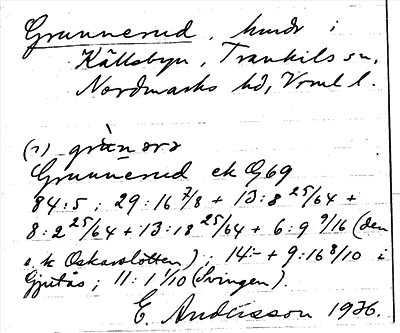 Grunnerud, hmdr i
Källsbyn, Trankils sn,
Nordmarks hd, Vrml l.
(1) grùn ərə
Grunnerud ek Og 69
84:5; 29:16 7/8 + 13:8 25/64 +
8:2 25/64 + 13:18 25/64 + 6:9 9/16 (den
s. k Oskarslotten); 14:- + 9:16 8/10 i
Gjutås; 11:1 1/10 (Svingen).
E. Andersson 1936.